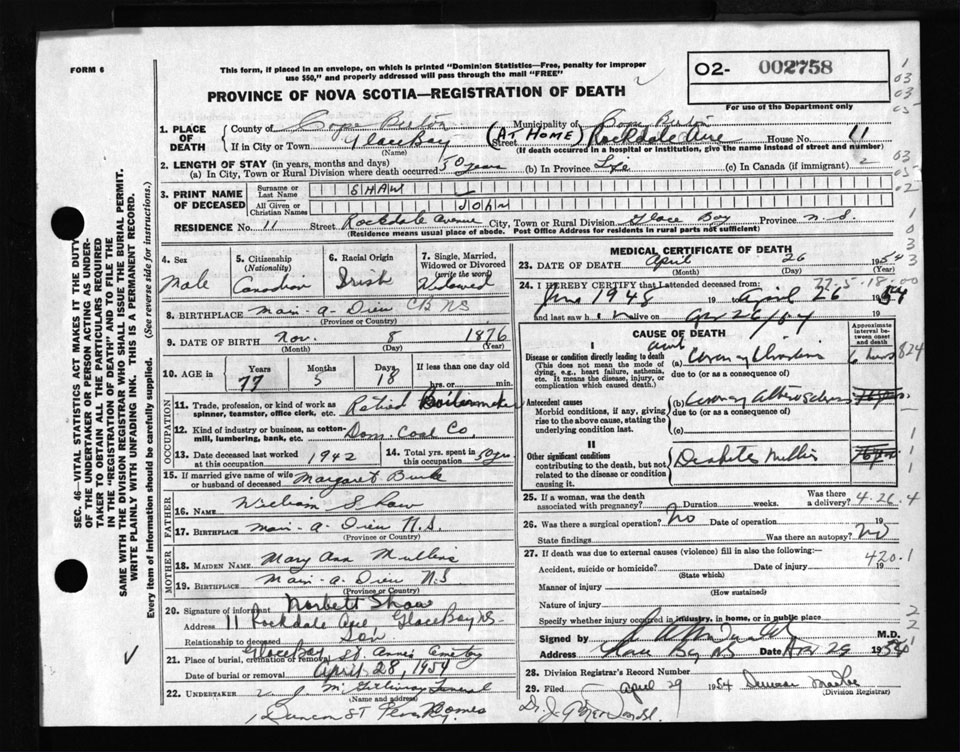 FORM 6
This form, if placed in an envelope, on which is printed "Dominion Statistics—Free, penalty for improper
use $50," and properly addressed will pass through the mail "FREE"
O2- 002758
For use of the Department only
PROVINCE OF NOVA SCOTIA—REGISTRATION OF DEATH
1. PLACE OF DEATH
County of Cape Breton Municipality of Cape Breton
If in City or Town Glace Bay (Name) (AT HOME) Street Rockdale Ave House No. 11
(If death occurred in a hospital or institution, give the name instead of street and number)
2. LENGTH OF STAY (in years, months and days)
(a) In City, Town or Rural Division where death occurred 50 years (b) In Province Life (c) In Canada (if immigrant)
3. PRINT NAME OF DECEASED
Surname or Last Name SHAW
All Given or Christian Names John
RESIDENCE No. 11 Street Rockdale Avenue City, Town or Rural Division Glace Bay Province N.S.
(Residence means usual place of abode. Post Office Address for residents in rural parts not sufficient)
4. Sex Male
5. Citizenship (Nationality) Canadian
6. Racial Origin Irish
7. Single, Married, Widowed or Divorced (write the word) Widowed
8. BIRTHPLACE Main-a-Dieu CB NS
(Province or Country)
9. DATE OF BIRTH Nov. 8 1876
(Month) (Day) (Year)
10. AGE in Years 77 Months 5 Days 18 If less than one day old hrs. or min.
OCCUPATION
11. Trade, profession or kind of work as spinner, teamster, office clerk, etc. Retired Boilermaker
12. Kind of industry or business, as cotton-mill, lumbering, bank, etc. Dom. Coal Co.
13. Date deceased last worked at this occupation 1942
14. Total yrs. spent in this occupation 50 yrs.
15. If married give name of wife or husband of deceased Margaret Burke
FATHER
16. NAME William Shaw
17. BIRTHPLACE Main-a-Dieu N.S.
(Province or Country)
MOTHER
18. MAIDEN NAME Mary Ann Mullins
19. BIRTHPLACE Main-a-Dieu N.S
(Province or Country)
20. Signature of informant Norbett Shaw
Address 11 Rockdale Ave Glace Bay NS.
Relationship to deceased Son
21. Place of burial, cremation or removal Glace Bay St. Annes Cemetery
Date of burial or removal April 28, 1954
22. UNDERTAKER V. J. McGillivray Funeral
(Name and address)
Homes
MEDICAL CERTIFICATE OF DEATH
23. DATE OF DEATH April 26 1954
(Month) (Day) (Year)
24. I HEREBY CERTIFY that I attended deceased from:
1948 19 to April 26 1954
and last saw him alive on Apr 26/54
CAUSE OF DEATH
Approximate interval between onset and death
I
Disease or condition directly leading to death
(This does not mean the mode of dying, e.g., heart failure, asthenia, etc. It means the disease, injury, or complication which caused death.)
(a) Coronary 6 hrs
due to (or as a consequence of)
Antecedent causes
Morbid conditions, if any, giving rise to the above cause, stating the underlying condition last.
(b) Coronary
due to (or as a consequence of)
(c)
II
Other significant conditions
contributing to the death, but not related to the disease or condition causing it.
Diabetes Mellitus
25. If a woman, was the death associated with pregnancy? Duration weeks. Was there a delivery?
4-26.4
26. Was there a surgical operation? No Date of operation 19
State findings Was there an autopsy? No
27. If death was due to external causes (violence) fill in also the following:—
420.1
Accident, suicide or homicide? Date of injury 19
(State which)
Manner of injury
(How sustained)
Nature of injury
Specify whether injury occurred in industry, in home, or in public place
Signed by M.D.
Address Glace Bay NS Date Apr 29 1954
28. Division Registrar's Record Number
29. Filed April 29 1954
(Division Registrar)
SEC. 46—VITAL STATISTICS ACT MAKES IT THE DUTY
OF THE UNDERTAKER OR PERSON ACTING AS UNDER-
TAKER TO OBTAIN ALL THE PARTICULARS REQUIRED
IN THE "REGISTRATION OF DEATH" AND TO FILE THE
SAME WITH THE DIVISION REGISTRAR WHO SHALL ISSUE THE BURIAL PERMIT.
WRITE PLAINLY WITH UNFADING INK. THIS IS A PERMANENT RECORD.
Every item of information should be carefully supplied. (See reverse side for instructions.)